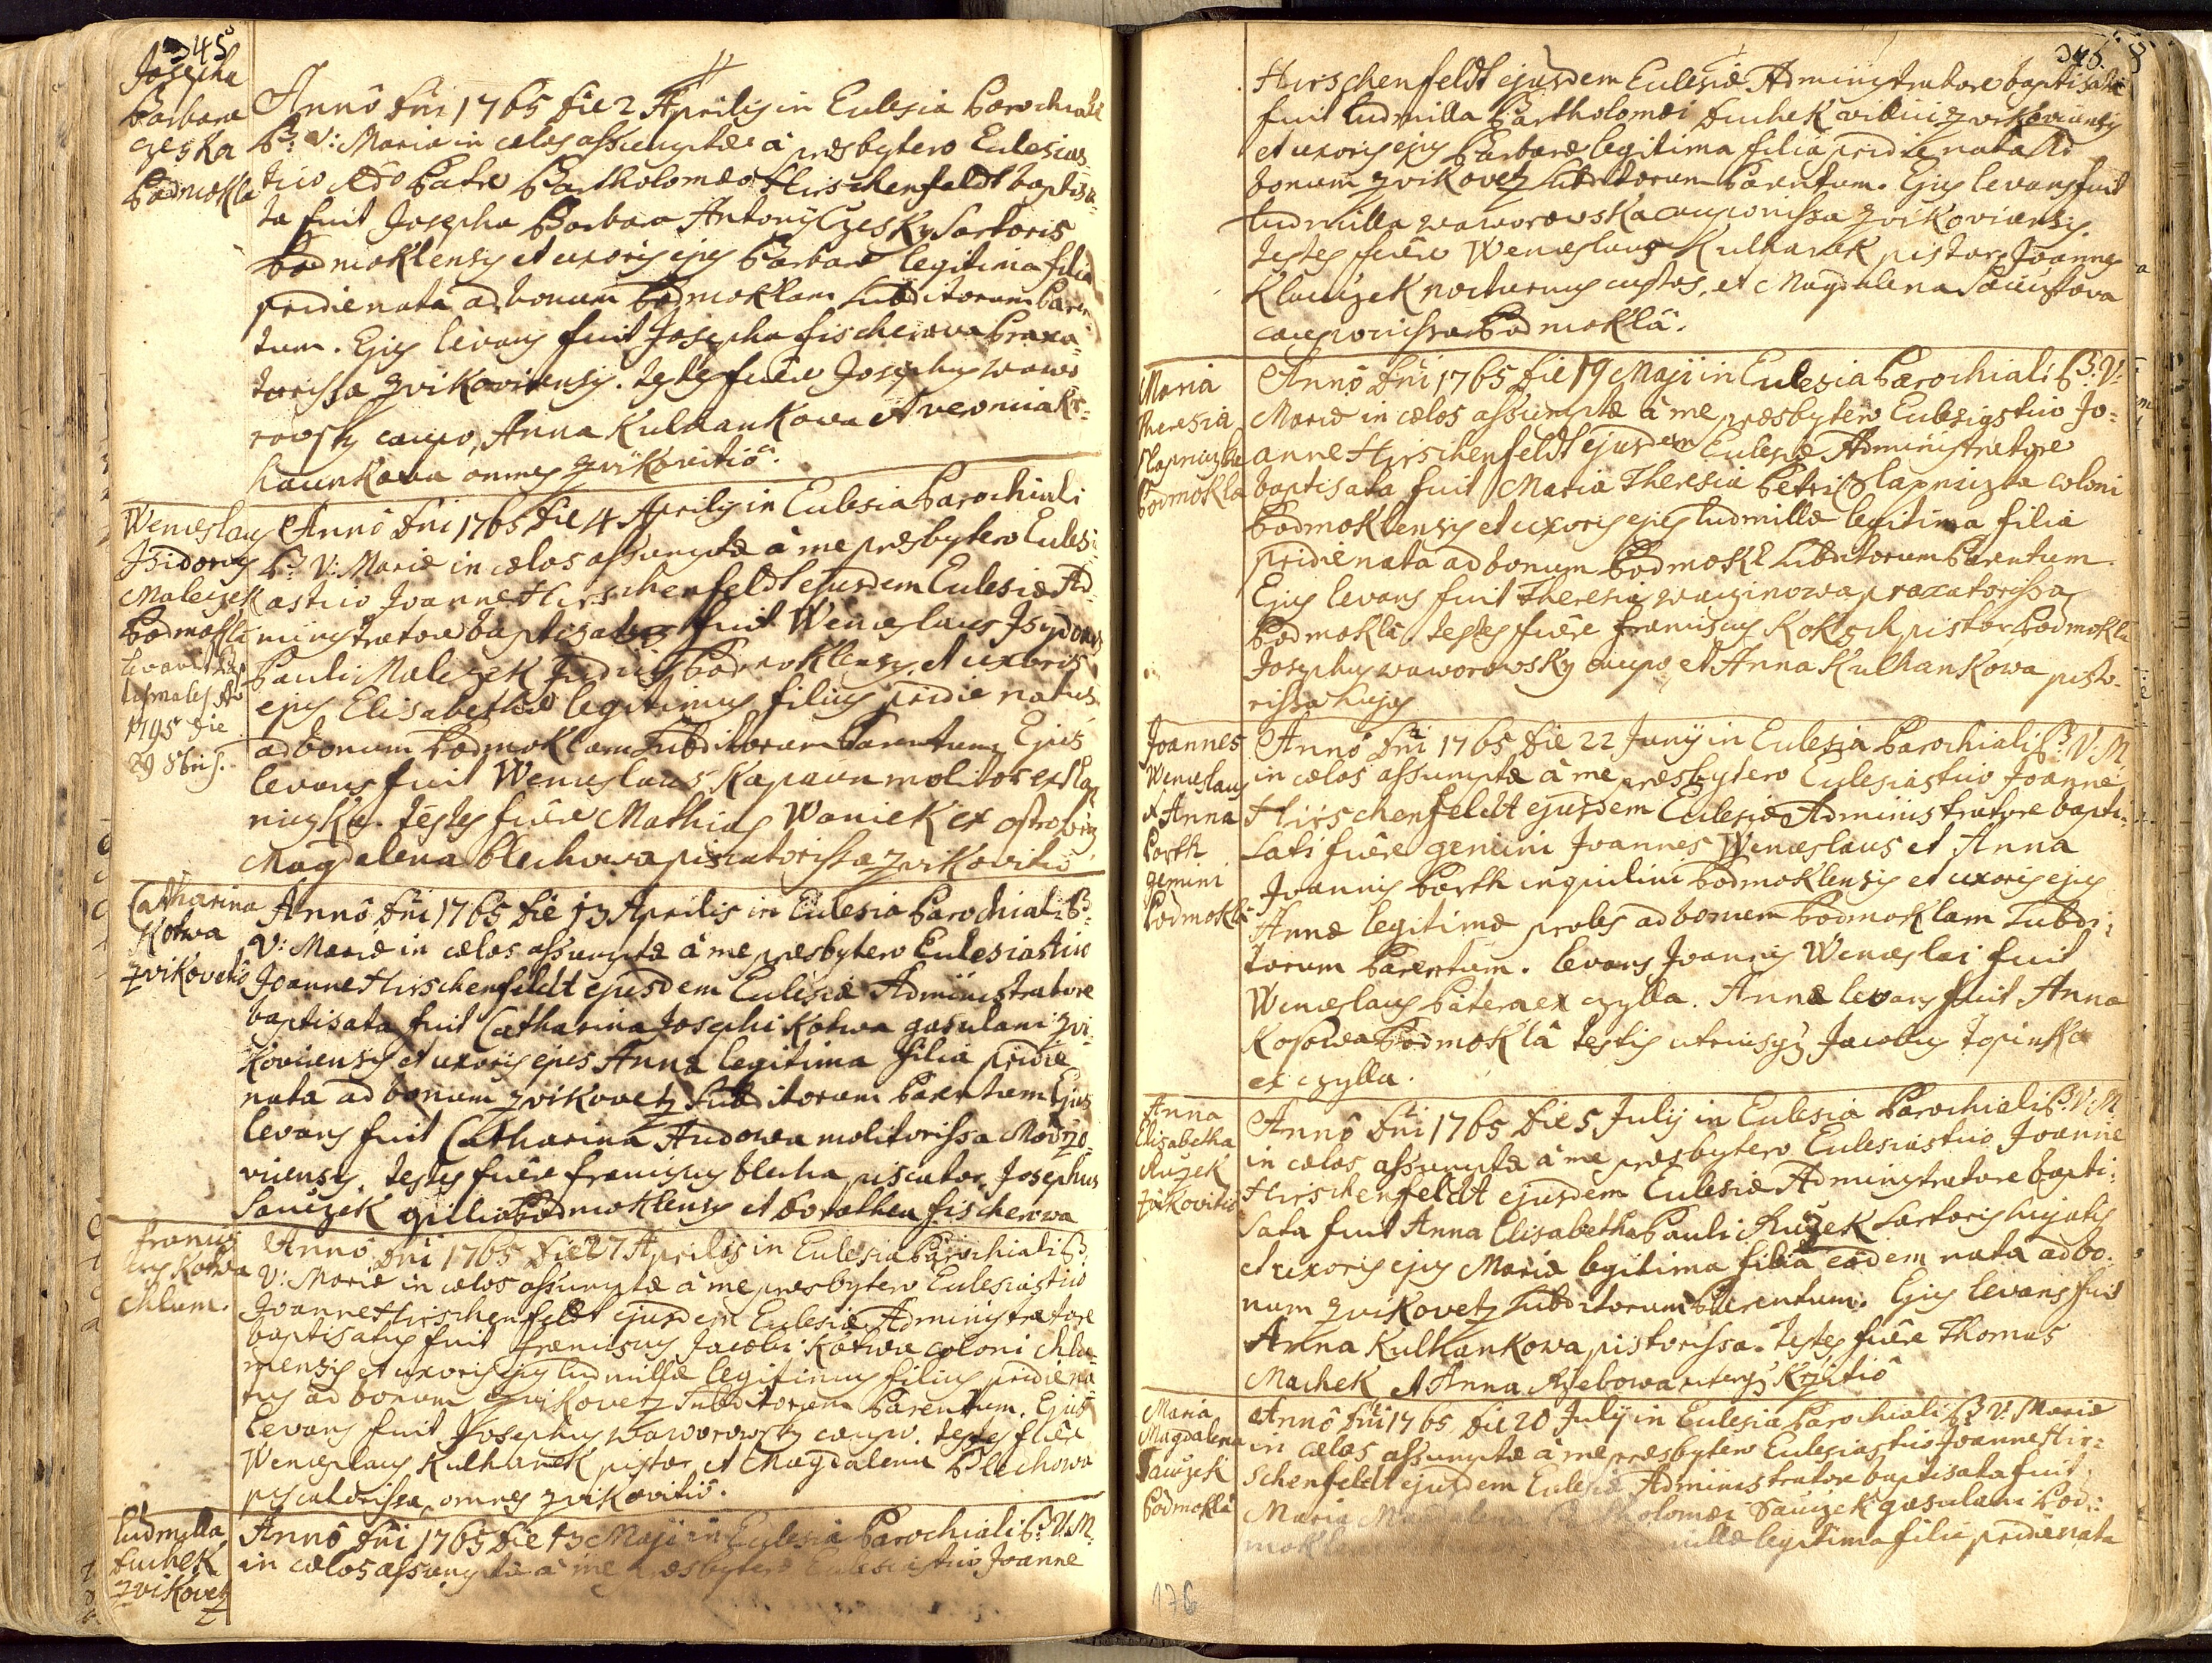 345
Josepha
Barbara
Czeska
Podmokla
Annô Dni 1765 die 2 Aprilis in Eclesia Parochiali
B: V: Mariæ in cælos assumptæ à præsbytero Eclesias
tico Rdo Patre Bartholomæo Hirschenfeldt baptisa-
ta fuit Josepha Barbara Antonij Czesky Sartoris
Podmoklensis et uxoris ejus Barbaræ legitima filia
pridie nata ad bonum Podmoklam Subditorum Paren
tum. Ejus levans fuit Josepha Fischerowa Braxa-
torissa Zvikoviensis. Testes fuêre Josephus Wawo
rowsky caupo, Anna Kulhankowa et
omnes Zvikovitiô.
Wenceslaus
Isidorus
Maleczek
Podmokla
1795 die
29 8bris.
Annô Dni 1765 die 4 Aprilis in Eclesia Parochiali
B: V: Mariæ in cælos assumptæ à me præsbytero Eclesi-
astico Joanne Hirschenfeldt ejusdem Eclesiæ Ad-
ministratore baptisatus fuit Wenceslaus Isydorus
Pauli Maleczek Judicis Podmoklensis et uxoris
ejus Elisabethæ legitimus filius pridie natus
ad bonum Podmoklam Subditorum Parentum. Ejus
levans fuit Wenceslaus Kapaun molitor ex Slap
niczka. Testes fuêre Mathias Waniek ex
Magdalena Blechowa piscatorissa Zvikovitiô
Catharina
Kotwa
Zvikovitiô
Annô Dni 1765 die 13 Aprilis in Eclesia Parochiali B:
V: Mariæ in cælos assumptæ à me præsbytero Eclesiastico
Joanne Hirschenfeldt ejusdem Eclesiæ Administratore
baptisata fuit Catharina Josephi Kotwa gasulani Zvi-
koviensis et uxoris ejus Annæ legitima filia pridie
nata ad bonum Zvikovetz Subditorum Parentum Ejus
levans fuit Catharina Audowa molitorissa
viensis. Testes fuêre Franciscus Blecha piscator, Josephus
Sauczek Podmoklensis et Dorothea Fischerowa
Francis
cus Kotwa
Chlum.
Annô Dni 1765 die 27 Aprilis in Eclesia Parochiali B:
V: Mariæ in cælos assumptæ à me præsbytero Eclesiastico
Joanne Hirschenfeldt ejusdem Eclesiæ Administratore
baptisatus fuit Franciscus Jacobi Kotwa coloni Chlu-
mensis et uxoris ejus Ludmillæ legitimus filius pridie na-
tus ad bonum Zvikovetz Subditorum Parentum. Ejus
levans fuit Josephus Waworowsky caupo. Testes fuêre
Wenceslaus Kulhanek pistor et Magdalena Blechowa
piscatorissa, omnes Zvikovitiô.
Ludmilla
Duchek
Zvikovetz
Annô Dni 1765 die 13 Maji in Eclesia Parochiali B: V: M.
in cælos assumptæ à me præsbytero Eclesiastico Joanne
Hirschenfeldt ejusdem Eclesiæ Administratore baptisata
fuit Ludmilla Bartholomæi Duchek Zvikoviensis
et uxoris ejus Barbaræ legitima filia pridie nata Ad
bonum Zvikovetz Subditorum Parentum. Ejus levans fuit
Ludmilla Waworowska cauponissa Zvikoviensis.
Testes fuêre Wenceslaus Kulhanek pistor, Joannes
Klauczek nocturnus custos, et Magdalena Sauczkova
cauponissa Podmoklâ.
Maria
Theresia
Slapniczka
Podmokla
Annô Dni 1765 die 19 Maji in Eclesia Parochiali B: V:
Mariæ in cælos assumptæ à me præsbytero Eclesiastico Jo-
anne Hirschenfeldt ejusdem Eclesiæ Administratore
baptisata fuit Maria Theresia Petri Slapniczka coloni
Podmoklensis et uxoris ejus Ludmillæ legitima filia
pridie nata ad bonum Podmokl Subditorum Parentum.
Ejus levans fuit Theresia praxatorissa
Podmoklâ. Testes fuêre Franciscus Kokosch pistor Podmokla
Josephus Waworowsky caupo, et Anna Kulhankowa pisto-
rissa hujas
Joannes
Wenceslaus
et Anna
Parth
gemini
Podmokla
Annô Dni 1765 die 22 Junij in Eclesia Parochiali B: V: M.
in cælos assumptæ à me præsbytero Eclesiastico Joanne
Hirschenfeldt ejusdem Eclesiæ Administratore bapti-
sati fuêre gemini Joannes Wenceslaus et Anna
Joannis Parth inquilini Podmoklensis et uxoris ejus
Annæ legitimæ proles ad bonum Podmoklam Subdi-
torum Parentum. levans Joannis Wenceslai fuit
Wenceslaus Patera ex Czylla. Annæ levans fuit Anna
Kosowa Podmoklâ testis utriusq; Jacobus Topinka
ex Czylla.
Anna
Elisabetha
Ruzek
Zvikovitiô
Annô Dni 1765 die 5 Julij in Eclesia Parochiali B: V: M.
in cælos assumptæ à me præsbytero Eclesiastico Joanne
Hirschenfeldt ejusdem Eclesiæ Administratore bapti-
sata fuit Anna Elisabetha Pauli Ruzek Sartoris hujatis
et uxoris ejus Mariæ legitima filia eodem nata ad bo-
num Zvikovetz Subditorum Parentum. Ejus levans fuit
Anna Kulhankowa pistorissa. Testes fuêre Thomas
Machek et Anna Rzebowa uterq;
Maria
Magdalena
Sauczek
Podmoklâ
Annô Dni 1765 die 20 Julij in Eclesia Parochiali B: V: Mariæ
in cælos assumptæ à me præsbytero Eclesiastico Joanne Hir-
schenfeldt ejusdem Eclesiæ Administratore baptisata fuit
Maria Magdalena Bartholomæi Sauczek gasulani Pod-
mokl legitima filia pridie nata
176